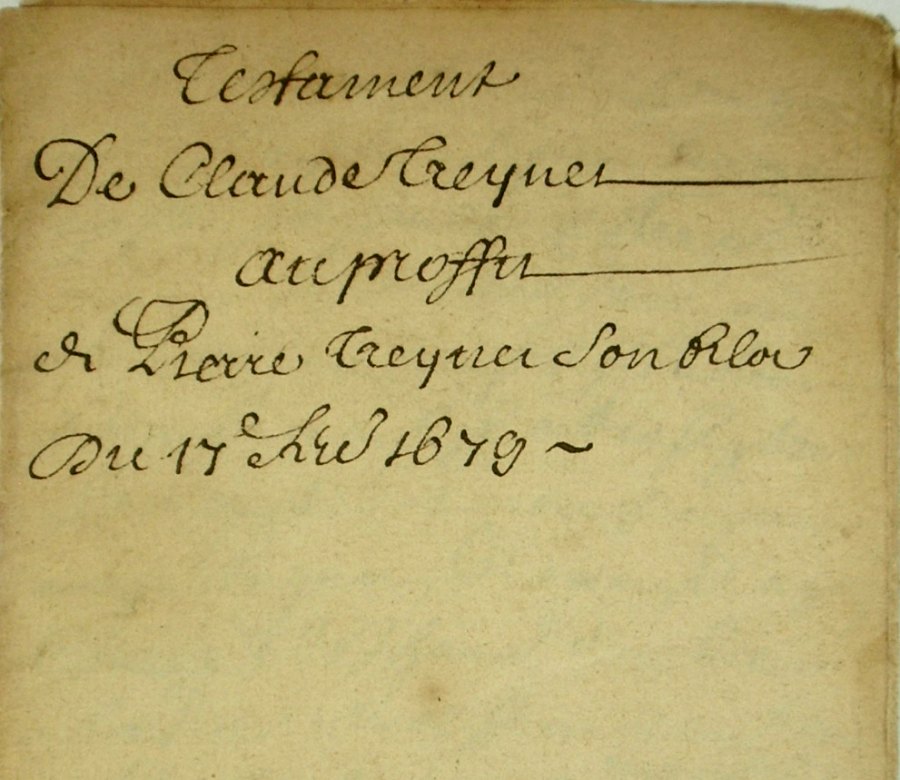 Testament
De Claude Treynet
au proffit
de Pierre Treynet son
Du 17e 1679 ~